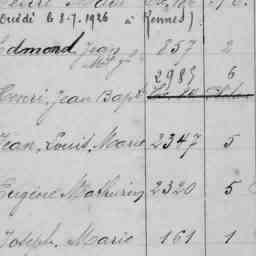 Décédé le 8-7-1926 à Rennes).
Edmond, Jean 857 2
2989 6
Henri, Jean Bapt
Jean, Louis, Marie 2347 5
Eugène Mathurin 2320 5
Joseph, Marie 161 1